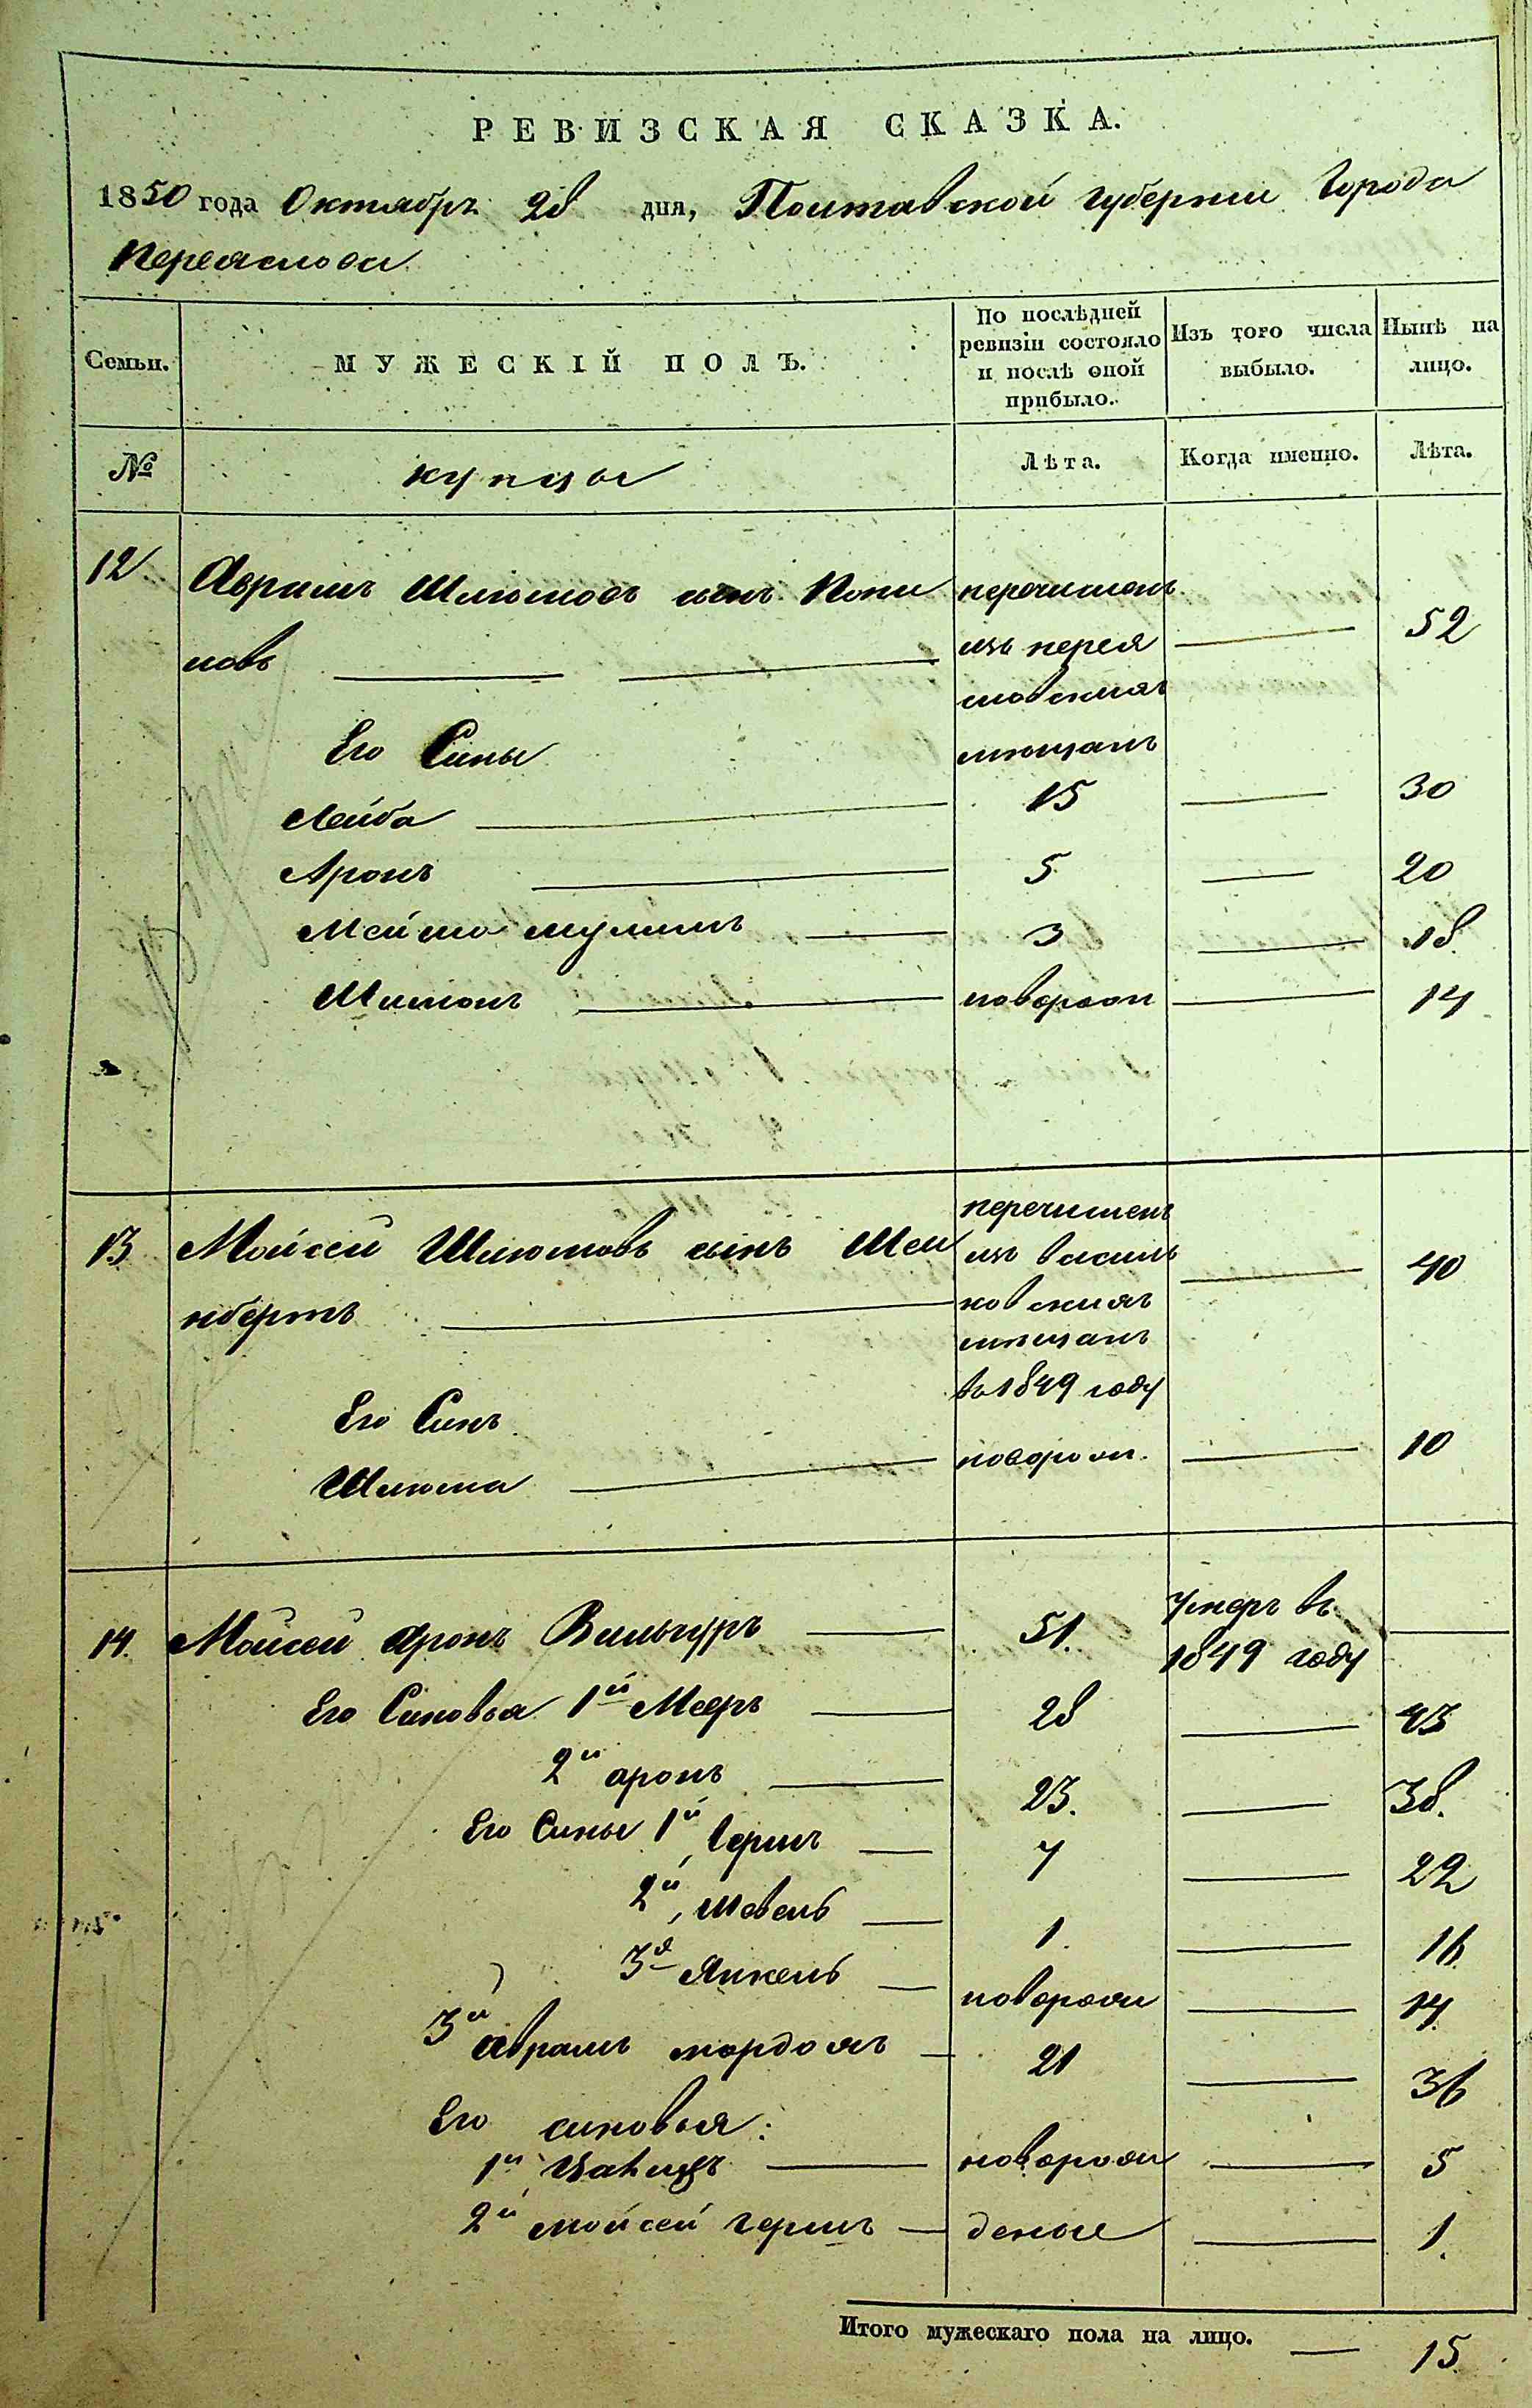 РЕВИЗСКАЯ СКАЗКА.
1850 года Октября 28 дня, Полтавской губернии Города
Переяслова
Семьи.
МУЖЕСКІЙ ПОЛЪ.
По послѣдней ревизіи состояло и послѣ оной прибыло.
Изъ того числа выбыло.
Нынѣ на лицо.
№
купцы
Лѣта.
Когда именно.
Лѣта.
12 Аврамъ Шлюмовъ сынъ Копи перечисленъ
новъ изъ перея 52
словскихъ
Его Сины мющанъ
Лейба 15 30
Аронъ 5 20
3 18
Шимонъ новорож 14
13 Мойсей Шлюмовъ сынъ Шей перечисленъ
нбергъ изъ василь 40
ковскихъ
мѣщанъ
въ 1849 году
Его Синъ
Шлюма новорож. 10
14. Мойсей Аронъ Вильгуръ 51. умеръ въ
1849 году
Его Синовья 1й Мееръ 28 43
2й аронъ 23. 38.
Его Сины 1й, Гершъ 7 22
2й, Шевель 1. 16
3й Янкель новорож 14
3й Аврамъ мордохъ 21 36
Его синовья:
1й новорож 5
2й мойсей гершъ деные 1.
Итого мужескаго пола на лицо. 15